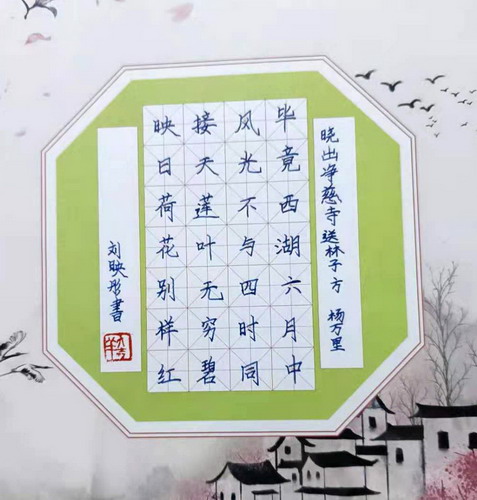 晓出净慈寺送林子方 杨万里
毕竟西湖六月中
风光不与四时同
接天莲叶无穷碧
映日荷花别样红
刘映彤書